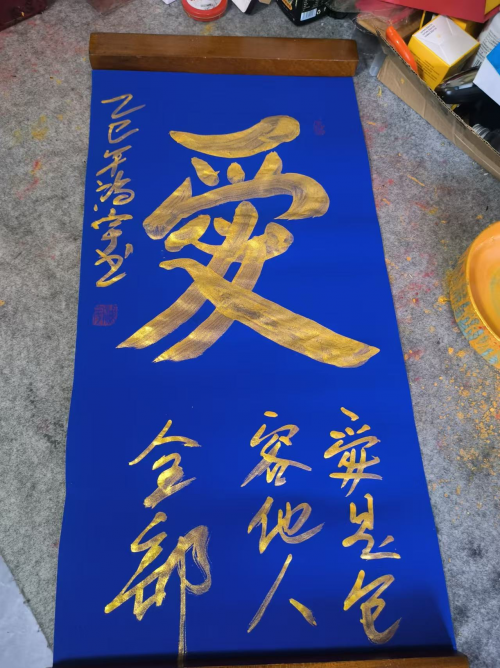 愛
愛是包
容他人
全部
乙巳年鸿宇书